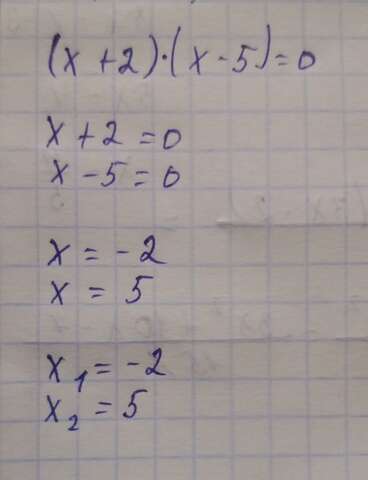 (x + 2)·(x - 5) = 0
x + 2 = 0
x - 5 = 0
x = -2
x = 5
x₁ = -2
x₂ = 5